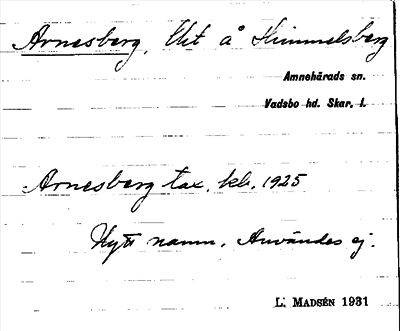 Arnesberg, Utj å Himmelsberg
Amnehärads sn.
Vadsbo hd. Skar. l.
Arnesberg tax. kb. 1925
Nytt namn. Användes ej.
L. MADSÉN 1931